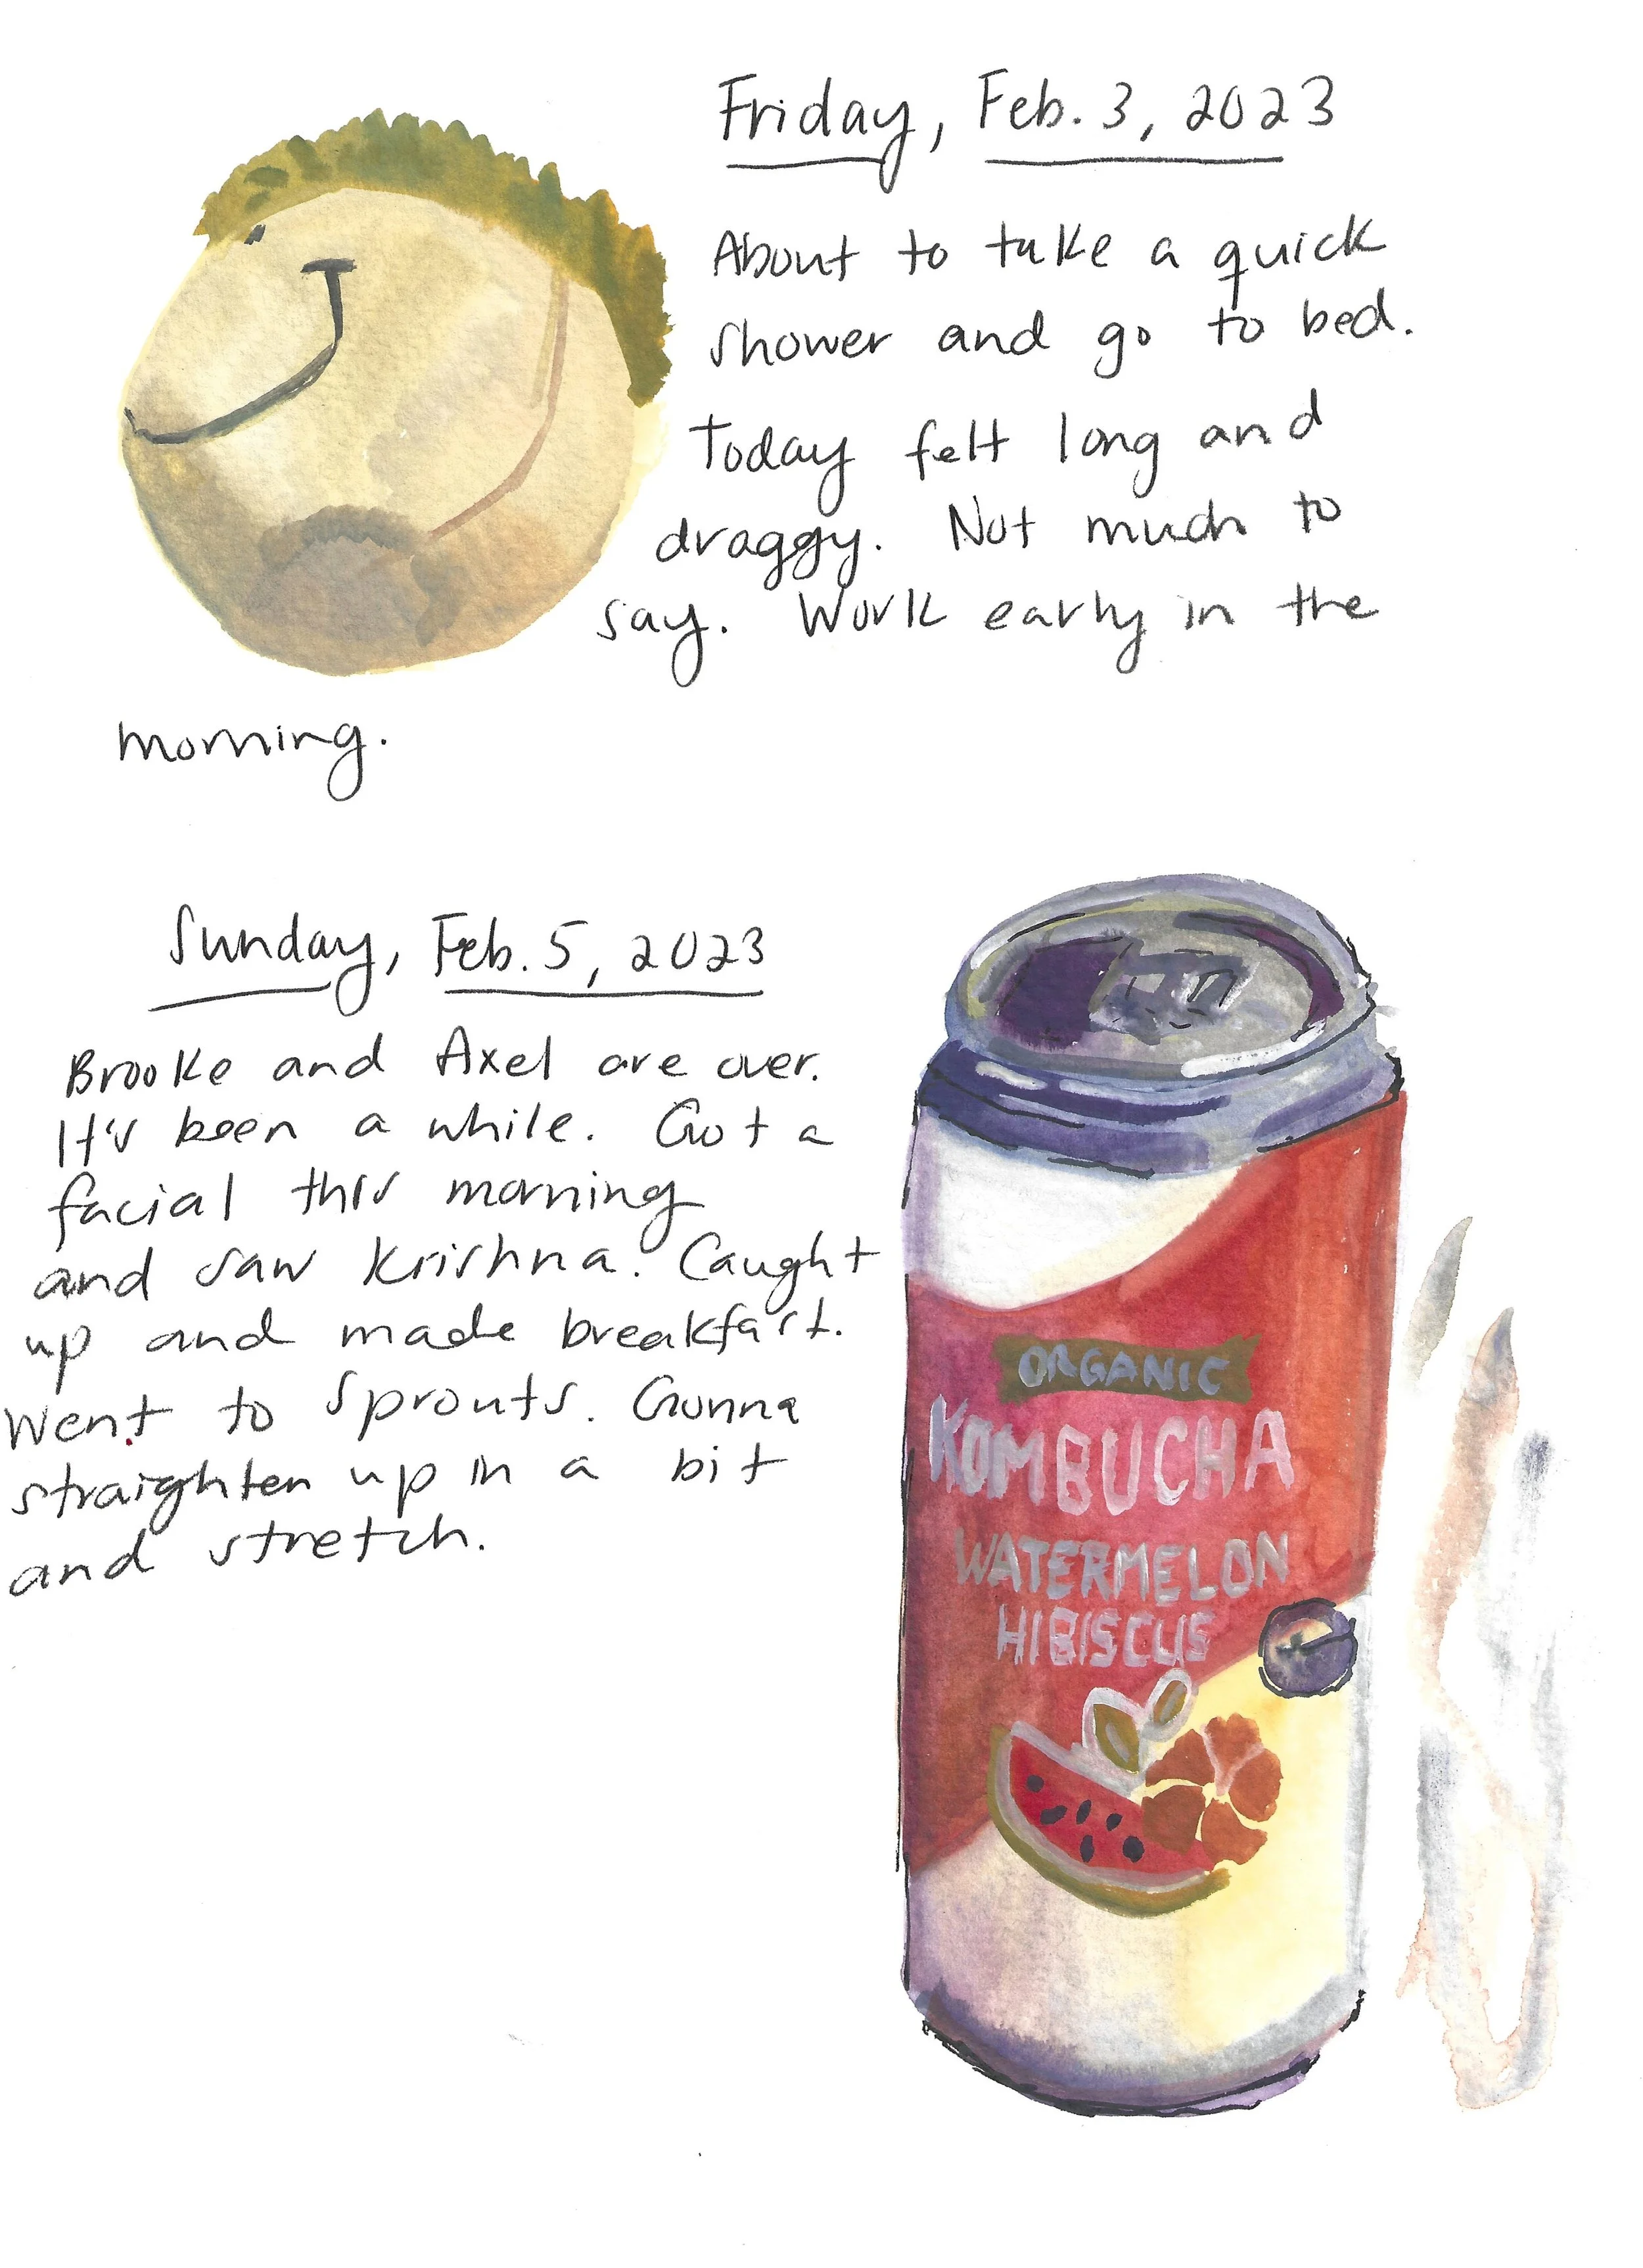 Friday, Feb. 3, 2023
About to take a quick
shower and go to bed.
Today felt long and
draggy. Not much to
say. Work early in the
morning.
Sunday, Feb. 5, 2023
Brooke and Axel are over.
It's been a while. Got a
facial this morning
and saw Krishna. Caught
up and made breakfast.
Went to Sprouts. Gunna
straighten up in a bit
and stretch.
ORGANIC
KOMBUCHA
WATERMELON
HIBISCUS